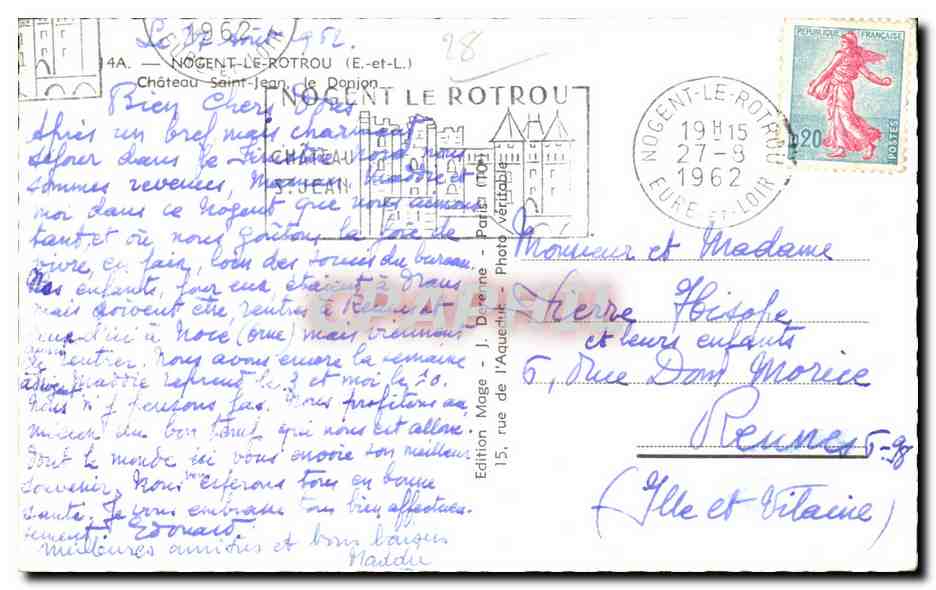 1962
EURE-ET-LOIR
Le 27 Août 1962.
28
4A. — NOGENT-LE-ROTROU (E.-et-L.)
Château Saint-Jean, le Donjon
NOGENT LE ROTROU
CHÂTEAU
ST JEAN
NOGENT-LE-ROTROU
19H15
27-8
1962
EURE-ET-LOIR
REPUBLIQUE FRANÇAISE
0,20
POSTES
Bien Chers
Après un bref mais charmant
séjour dans le Nord, nous
sommes revenus, Maman, Maddie et
moi dans ce Nogent que nous aimons
tant et où nous goûtons la joie de
vivre, en paix, loin des soucis du bureau.
Nos enfants, étaient à
mais doivent être rentrés à Rennes
à Nocé (Orne) mais
Nous avons encore la semaine
Maddie reprend le 3 et moi le 10.
Nous n'y pensons pas. Nous profitons au
mieux du bon temps qui nous est alloué.
Tout le monde ici vous envoie son meilleur
souvenir. Nous espérons tous en bonne
santé. Je vous embrasse tous bien affectueu-
sement. Edouard.
Meilleures amitiés et bons baisers
Maddie
Edition Mage - J. Derenne - Paris
15, rue de l'Aqueduc - Photo véritable
Monsieur et Madame
Pierre
et leurs enfants
5, Rue Dom Morice
Rennes
(Ille et Vilaine)